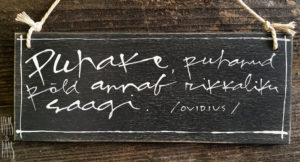 Puhake, puhanud
põld annab rikkaliku
saagi. /OVIDIUS/